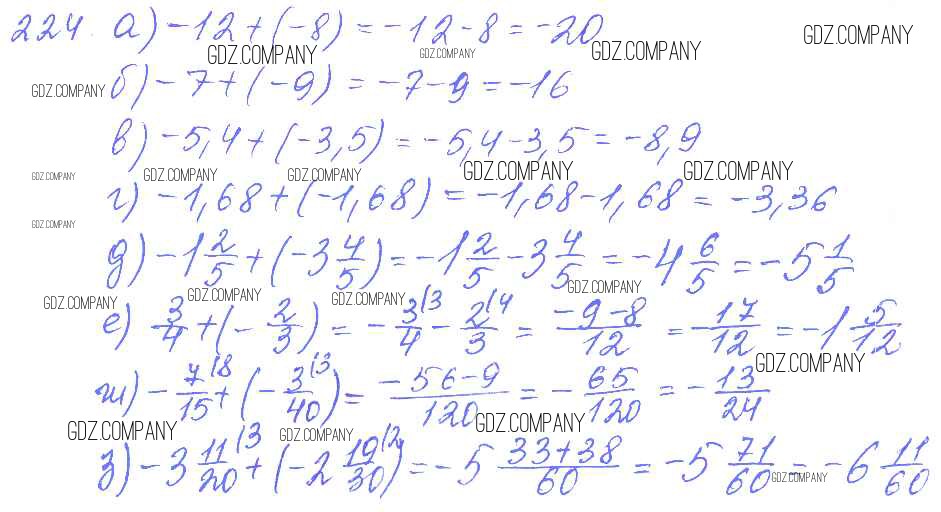 224. а) -12 + (-8) = -12 - 8 = -20
GDZ.COMPANY GDZ.COMPANY GDZ.COMPANY GDZ.COMPANY
GDZ.COMPANY б) -7 + (-9) = -7 - 9 = -16
в) -5,4 + (-3,5) = -5,4 - 3,5 = -8,9
GDZ.COMPANY GDZ.COMPANY GDZ.COMPANY GDZ.COMPANY GDZ.COMPANY
г) -1,68 + (-1,68) = -1,68 - 1,68 = -3,36
GDZ.COMPANY
д) -1 2/5 + (-3 4/5) = -1 2/5 - 3 4/5 = -4 6/5 = -5 1/5
GDZ.COMPANY GDZ.COMPANY GDZ.COMPANY GDZ.COMPANY
е) -3/4 + (-2/3) = -3/4 (3 - 2/3 (4 = (-9-8)/12 = -17/12 = -1 5/12
GDZ.COMPANY
ж) -7/15 (8 + (-3/40 (3) = (-56-9)/120 = -65/120 = -13/24
GDZ.COMPANY GDZ.COMPANY GDZ.COMPANY
з) -3 11/20 (3 + (-2 19/30 (2) = -5 (33+38)/60 = -5 71/60 = -6 11/60
GDZ.COMPANY